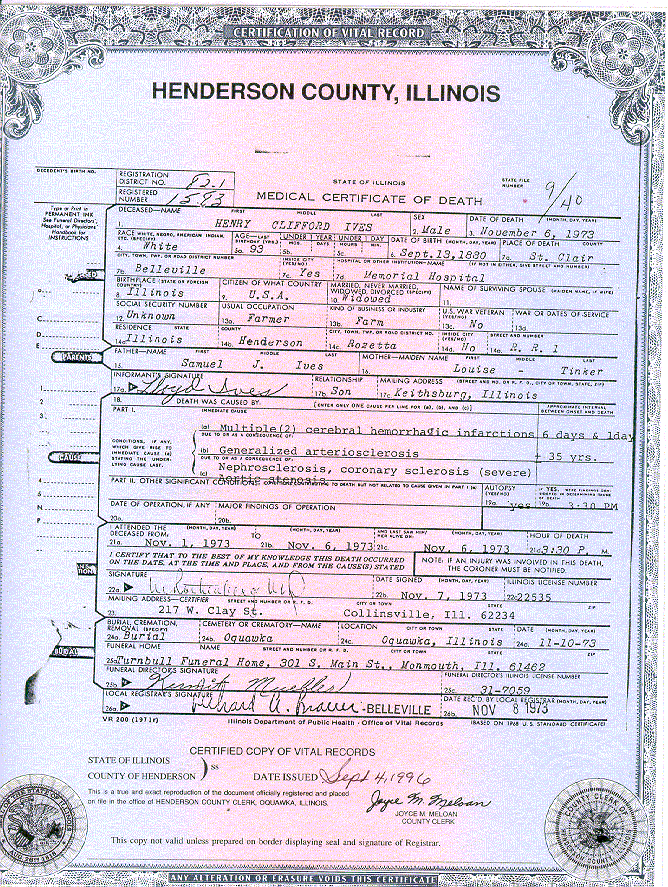 CERTIFICATION OF VITAL RECORD
HENDERSON COUNTY, ILLINOIS
DECEDENT'S BIRTH NO.
REGISTRATION DISTRICT NO. 82.1
STATE OF ILLINOIS
STATE FILE NUMBER
9/40
REGISTERED NUMBER 1593
MEDICAL CERTIFICATE OF DEATH
Type or Print in PERMANENT INK See Funeral Directors', Hospital, or Physicians' Handbook for INSTRUCTIONS
DECEASED—NAME FIRST MIDDLE LAST SEX DATE OF DEATH (MONTH, DAY, YEAR)
1. HENRY CLIFFORD IVES 2. Male 3. November 6, 1973
RACE WHITE, NEGRO, AMERICAN INDIAN, ETC. (SPECIFY) AGE—LAST BIRTHDAY (YRS.) UNDER 1 YEAR MOS. DAYS UNDER 1 DAY HOURS MIN. DATE OF BIRTH (MONTH, DAY, YEAR) PLACE OF DEATH COUNTY
4. White 5a. 93 5b. 5c. 6. Sept.13,1880 7a. St. Clair
CITY, TOWN, TWP, OR ROAD DISTRICT NUMBER INSIDE CITY (YES/NO) HOSPITAL OR OTHER INSTITUTION—NAME (IF NOT IN EITHER, GIVE STREET AND NUMBER)
7b. Belleville 7c. Yes 7d. Memorial Hospital
BIRTHPLACE (STATE OR FOREIGN COUNTRY) CITIZEN OF WHAT COUNTRY MARRIED, NEVER MARRIED, WIDOWED, DIVORCED (SPECIFY) NAME OF SURVIVING SPOUSE (MAIDEN NAME, IF WIFE)
8. Illinois 9. U.S.A. 10. Widowed 11.
SOCIAL SECURITY NUMBER USUAL OCCUPATION KIND OF BUSINESS OR INDUSTRY U.S. WAR VETERAN (YES/NO) WAR OR DATES OF SERVICE
12. Unknown 13a. Farmer 13b. Farm 13c. No 13d.
RESIDENCE STATE COUNTY CITY, TOWN, TWP, OR ROAD DISTRICT NO. INSIDE CITY (YES/NO) STREET AND NUMBER
14a. Illinois 14b. Henderson 14c. Rozetta 14d. No 14e. R. R. 1
PARENTS
FATHER—NAME FIRST MIDDLE LAST MOTHER—MAIDEN NAME FIRST MIDDLE LAST
15. Samuel J. Ives 16. Louise - Tinker
INFORMANT'S SIGNATURE RELATIONSHIP MAILING ADDRESS (STREET AND NO. OR R. F. D., CITY OR TOWN, STATE, ZIP)
17a. Lloyd Ives 17b. Son 17c. Keithsburg, Illinois
18. DEATH WAS CAUSED BY: (ENTER ONLY ONE CAUSE PER LINE FOR (a), (b), AND (c)) APPROXIMATE INTERVAL BETWEEN ONSET AND DEATH
PART I. IMMEDIATE CAUSE
(a) Multiple(2) cerebral hemorrhagic infarctions 6 days & 1day
CONDITIONS, IF ANY, WHICH GIVE RISE TO IMMEDIATE CAUSE (a) STATING THE UNDERLYING CAUSE LAST.
DUE TO OR AS A CONSEQUENCE OF:
CAUSE
(b) Generalized arteriosclerosis + 35 yrs.
DUE TO OR AS A CONSEQUENCE OF:
(c) Nephrosclerosis, coronary sclerosis (severe)
aortic stenosis
PART II. OTHER SIGNIFICANT CONDITIONS: CONDITIONS CONTRIBUTING TO DEATH BUT NOT RELATED TO CAUSE GIVEN IN PART I (a) AUTOPSY (YES/NO) IF YES, WERE FINDINGS CONSIDERED IN DETERMINING CAUSE OF DEATH
19a. yes 19b. 3:30 PM
DATE OF OPERATION, IF ANY MAJOR FINDINGS OF OPERATION
20a. 20b.
I ATTENDED THE DECEASED FROM: (MONTH, DAY, YEAR) TO (MONTH, DAY, YEAR) AND LAST SAW HIM/HER ALIVE ON: (MONTH, DAY, YEAR) HOUR OF DEATH
21a. Nov. 1, 1973 21b. Nov. 6, 1973 21c. Nov. 6, 1973 21d. 3:30 P. M.
I CERTIFY THAT TO THE BEST OF MY KNOWLEDGE THIS DEATH OCCURRED ON THE DATE, AT THE TIME AND PLACE, AND FROM THE CAUSE(S) STATED
NOTE: IF AN INJURY WAS INVOLVED IN THIS DEATH, THE CORONER MUST BE NOTIFIED.
SIGNATURE DATE SIGNED (MONTH, DAY, YEAR) ILLINOIS LICENSE NUMBER
22a. 22b. Nov. 7, 1973 22c. 22535
MAILING ADDRESS—CERTIFIER STREET AND NUMBER OR R. F. D. CITY OR TOWN STATE ZIP
23. 217 W. Clay St. Collinsville, Ill. 62234
BURIAL, CREMATION, REMOVAL (SPECIFY) CEMETERY OR CREMATORY—NAME LOCATION CITY OR TOWN STATE DATE (MONTH, DAY, YEAR)
24a. Burial 24b. Oquawka 24c. Oquawka, Illinois 24d. 11-10-73
FUNERAL HOME NAME STREET AND NUMBER OR R. F. D. CITY OR TOWN STATE ZIP
25a. Turnbull Funeral Home, 301 S. Main St., Monmouth, Ill. 61462
FUNERAL DIRECTOR'S SIGNATURE FUNERAL DIRECTOR'S ILLINOIS LICENSE NUMBER
25b. 25c. 31-7059
LOCAL REGISTRAR'S SIGNATURE DATE REC'D BY LOCAL REGISTRAR (MONTH, DAY, YEAR)
26a. -BELLEVILLE 26b. NOV 8 1973
VR 200 (1971r) Illinois Department of Public Health - Office of Vital Records (BASED ON 1968 U.S. STANDARD CERTIFICATE)
CERTIFIED COPY OF VITAL RECORDS
STATE OF ILLINOIS
COUNTY OF HENDERSON ) SS DATE ISSUED Sept 4, 1996
This is a true and exact reproduction of the document officially registered and placed
on file in the office of HENDERSON COUNTY CLERK, OQUAWKA, ILLINOIS.
Joyce M. Meloan
JOYCE M. MELOAN
COUNTY CLERK
This copy not valid unless prepared on border displaying seal and signature of Registrar.
ANY ALTERATION OR ERASURE VOIDS THIS CERTIFICATE